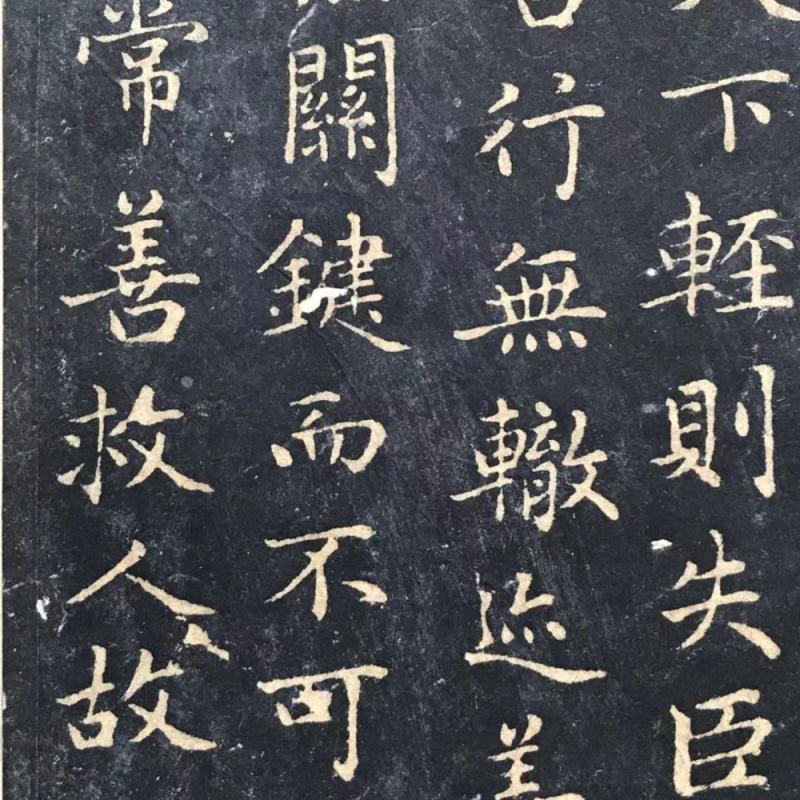 天下輕則失臣
善行無轍迹善
無關鍵而不可
常善救人故